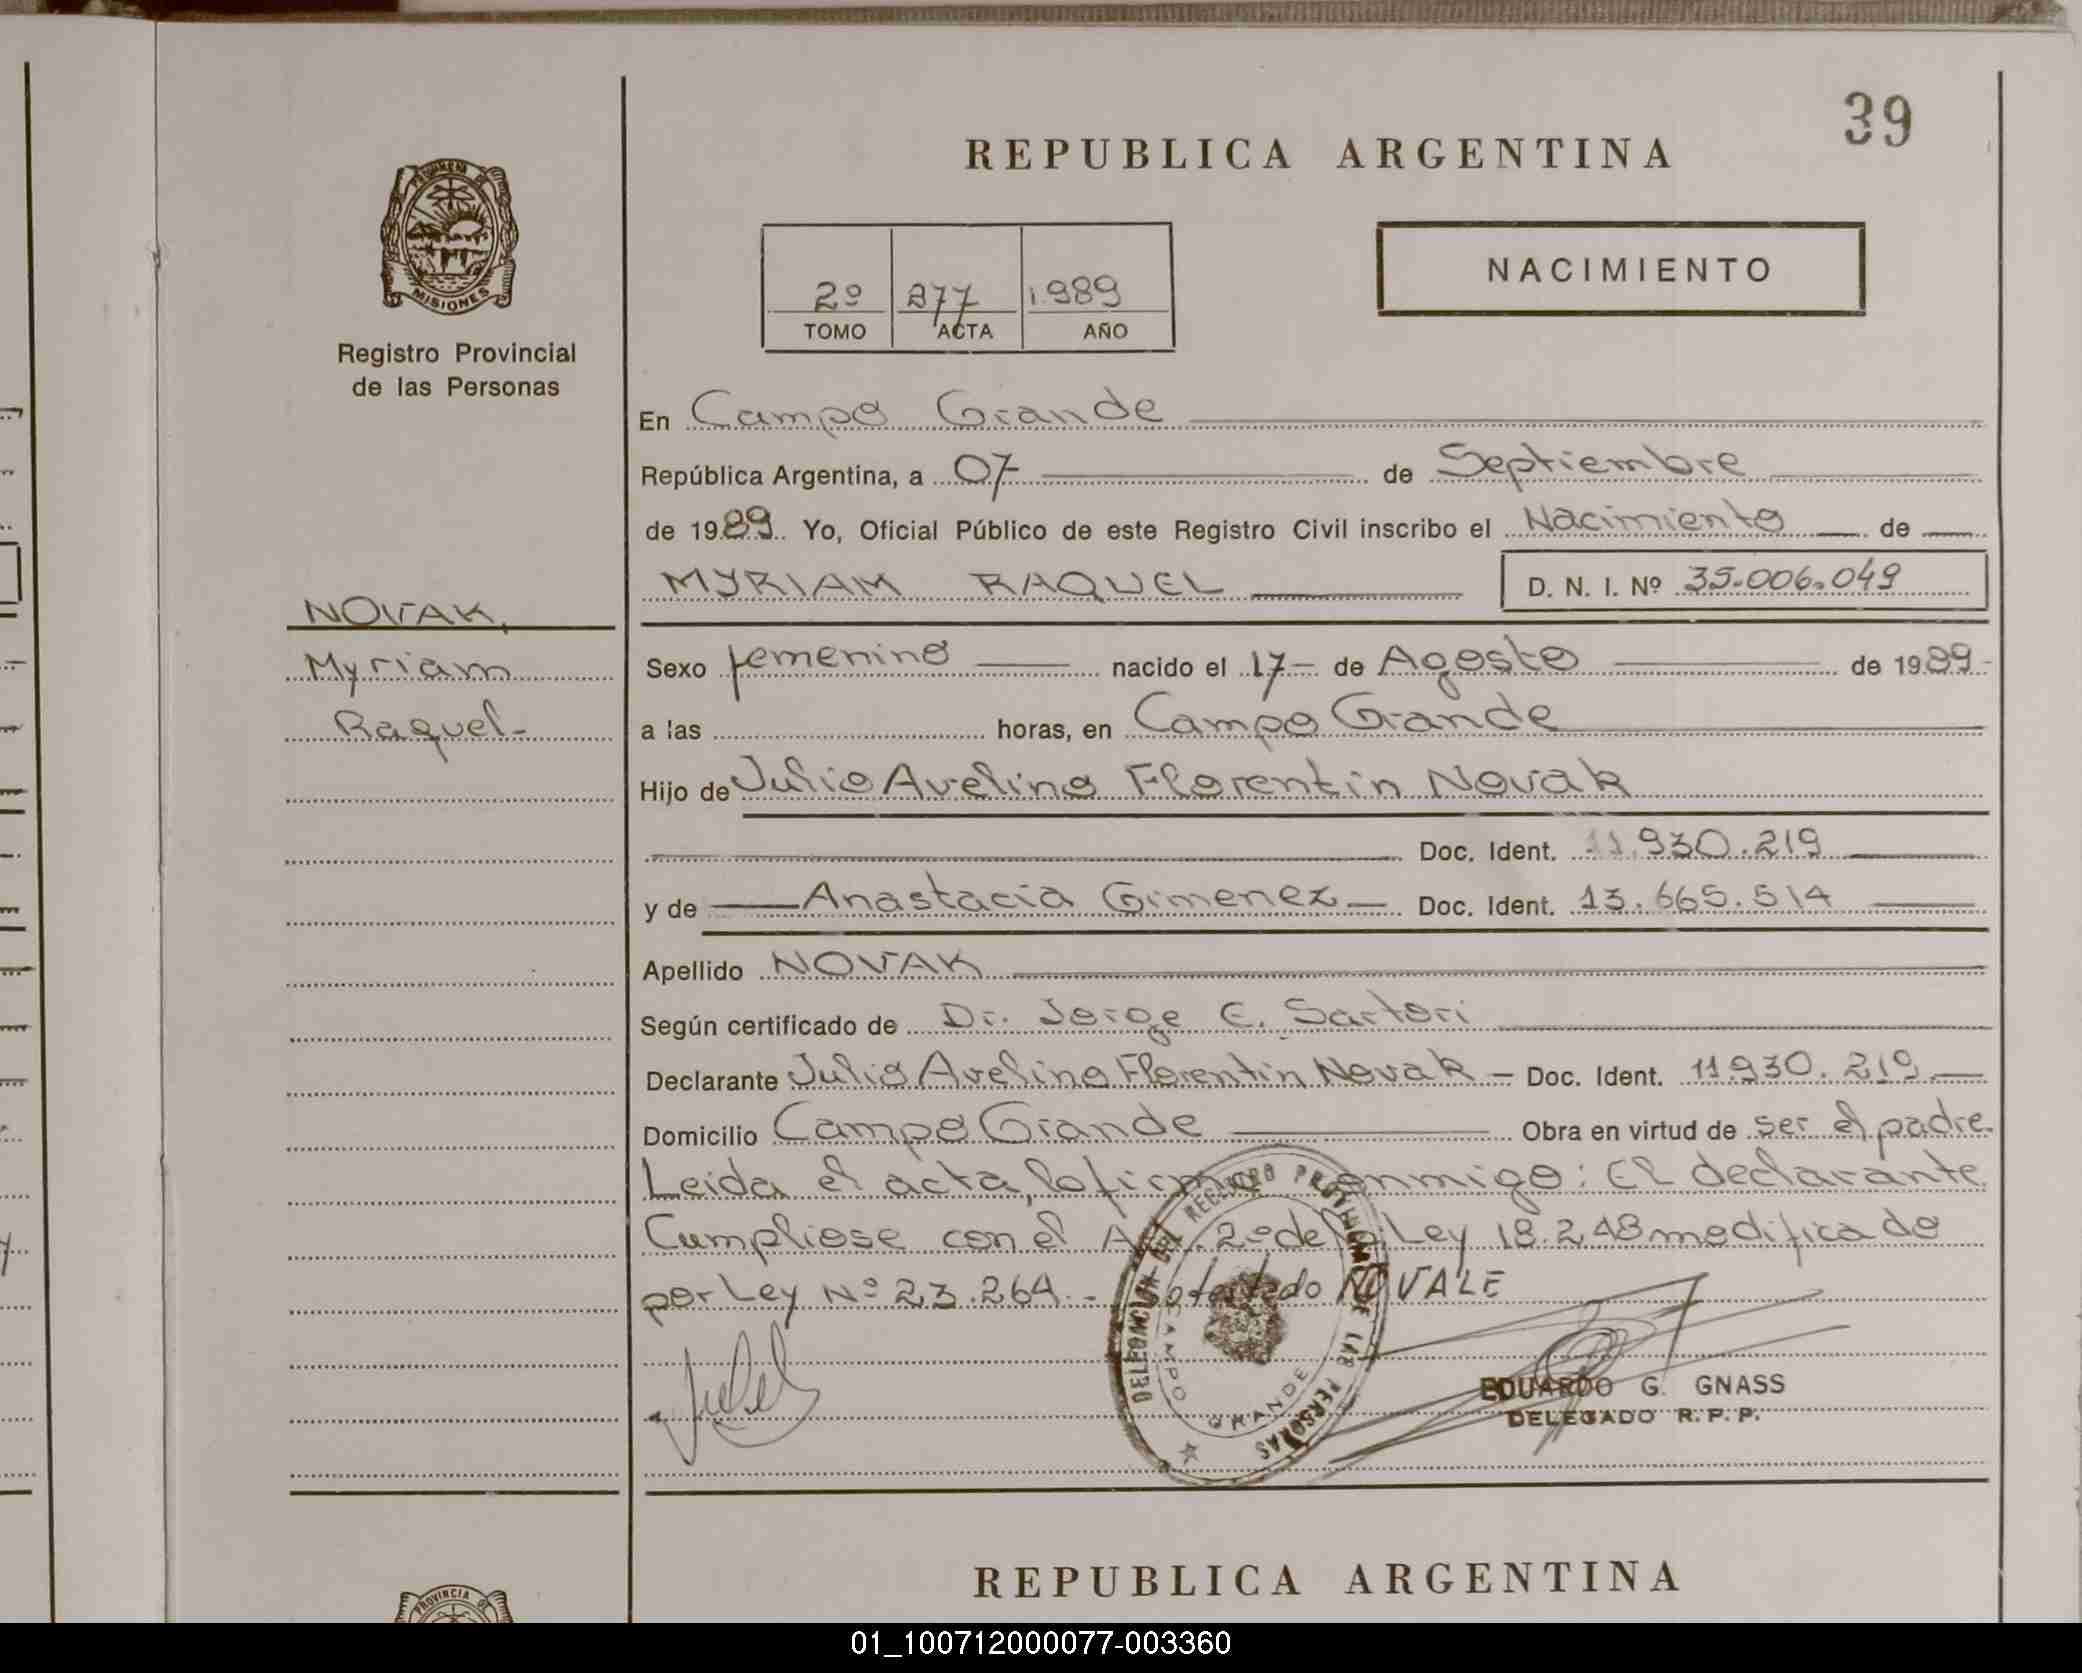 39
REPUBLICA ARGENTINA
PROVINCIA DE
MISIONES
Registro Provincial
de las Personas
2º 277 1989
TOMO ACTA AÑO
NACIMIENTO
En Campo Grande
República Argentina, a 07 de Septiembre
de 1989. Yo, Oficial Público de este Registro Civil inscribo el Nacimiento de
MYRIAM RAQUEL D. N. I. Nº 35.006.049
NOVAK,
Myriam
Raquel-
Sexo femenino nacido el 17- de Agosto de 1989-
a las horas, en Campo Grande
Hijo de Julio Avelino Florentin Novak
Doc. Ident. 11.930.219
y de Anastacia Gimenez Doc. Ident. 13.665.514
Apellido NOVAK
Según certificado de Dr. Jorge E. Sartori
Declarante Julio Avelino Florentin Novak - Doc. Ident. 11.930.219
Domicilio Campo Grande Obra en virtud de ser el padre.
Leida el acta, la firma conmigo: El declarante
Cumpliose con el Art. 2º de la Ley 18.248 modificado
por Ley Nº 23.264.- NO VALE
DELEGACION DEL REGISTRO PROVINCIAL DE LAS PERSONAS
CAMPO GRANDE
EDUARDO G. GNASS
DELEGADO R.P.P.
REPUBLICA ARGENTINA
PROVINCIA DE
01_100712000077-003360